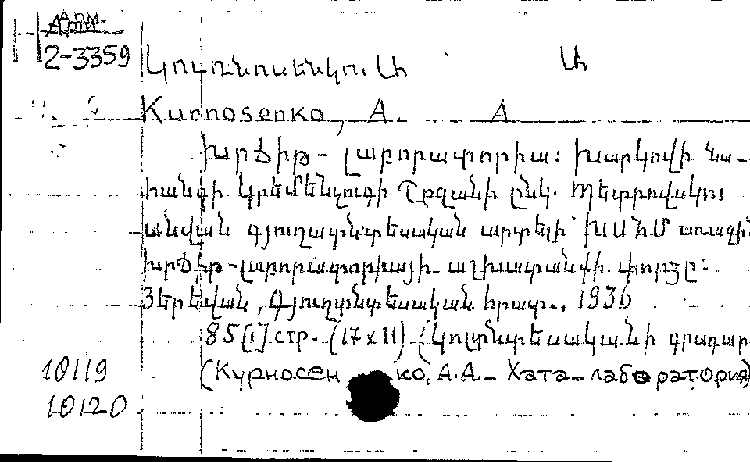 Арм.
2-3359
Կուռնոսենկո, Ա Ա
Kurnosenko, A. A
Խրճիթ - լաբորատորիա: Խարկովի նա-
հանգի Կրեմենչուգի Շրջանի ընկ. Պետրովսկու
անվան գյուղատնտեսական արտելի ԽՍՀՄ առաջին
խրճիթ-լաբորատորիայի աշխատանքի փորձը:
Յերեվան, Գյուղտնտեսական հրատ., 1936
85[1] стр. (17x11) (Կոլտնտեսականի գրադար
(Курносенко, А.А. - Хата-лаборатория)
10119
10120